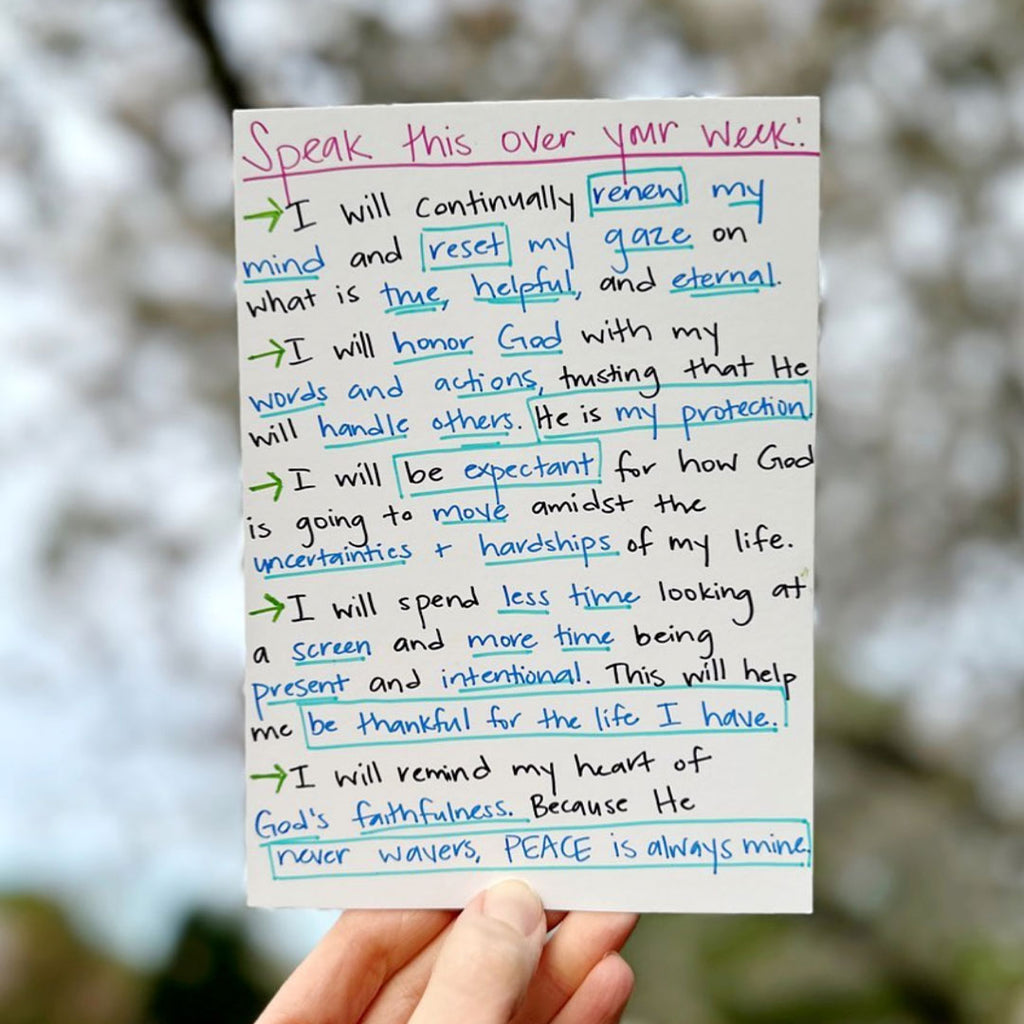 Speak this over your week:
→I will continually renew my
mind and reset my gaze on
what is true, helpful, and eternal.
→I will honor God with my
words and actions, trusting that He
will handle others. He is my protection.
→I will be expectant for how God
is going to move amidst the
uncertainties + hardships of my life.
→I will spend less time looking at
a screen and more time being
present and intentional. This will help
me be thankful for the life I have.
→I will remind my heart of
God's faithfulness. Because He
never wavers, PEACE is always mine.